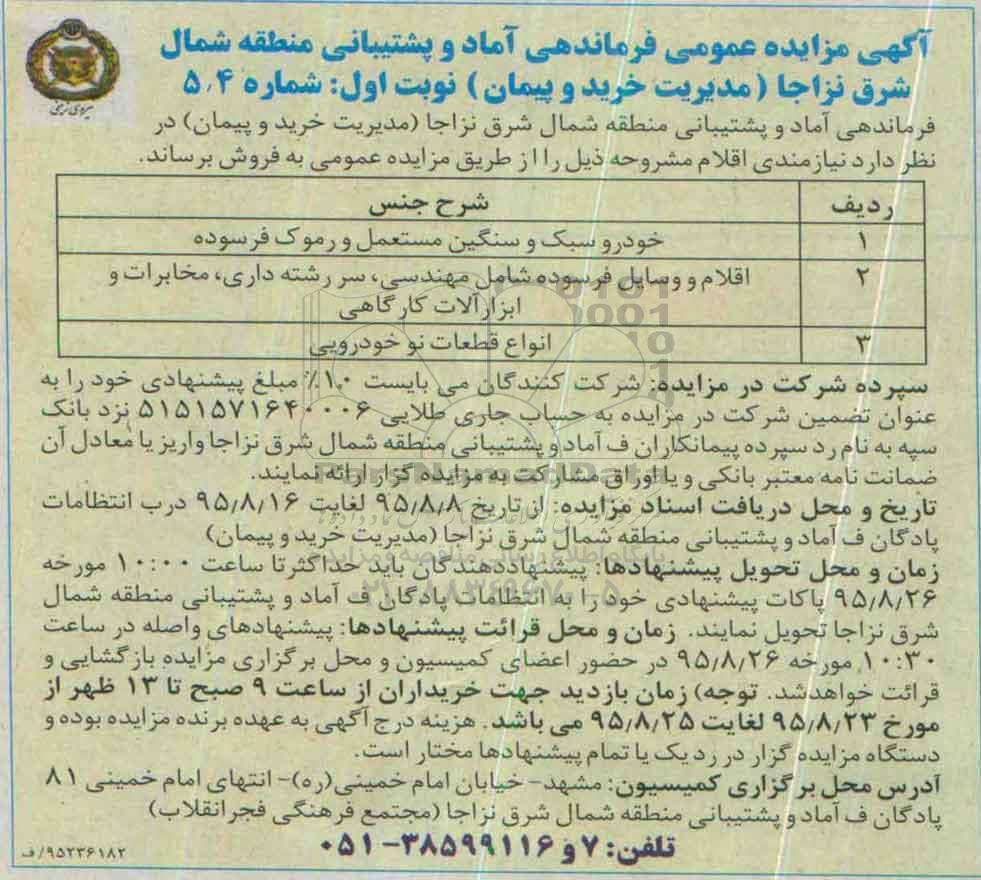 آگهی مزایده عمومی فرماندهی آماد و پشتیبانی منطقه شمال
شرق نزاجا (مدیریت خرید و پیمان) نوبت اول: شماره ۵٫۴
نیروی زمینی
فرماندهی آماد و پشتیبانی منطقه شمال شرق نزاجا (مدیریت خرید و پیمان) در
نظر دارد نیازمندی اقلام مشروحه ذیل را از طریق مزایده عمومی به فروش برساند.
ردیف شرح جنس
۱ خودرو سبک و سنگین مستعمل و رموک فرسوده
۲ اقلام و وسایل فرسوده شامل مهندسی، سر رشته داری، مخابرات و
ابزارآلات کارگاهی
۳ انواع قطعات نو خودرویی
سپرده شرکت در مزایده: شرکت کنندگان می بایست ۱۰٪ مبلغ پیشنهادی خود را به
عنوان تضمین شرکت در مزایده به حساب جاری طلایی ۵۱۵۱۵۷۱۶۴۰۰۰۶ نزد بانک
سپه به نام رد سپرده پیمانکاران ف آماد و پشتیبانی منطقه شمال شرق نزاجا واریز یا معادل آن
ضمانت نامه معتبر بانکی و یا اوراق مشارکت به مزایده گزار ارائه نمایند.
تاریخ و محل دریافت اسناد مزایده: از تاریخ ۹۵/۸/۸ لغایت ۹۵/۸/۱۶ درب انتظامات
پادگان ف آماد و پشتیبانی منطقه شمال شرق نزاجا (مدیریت خرید و پیمان)
زمان و محل تحویل پیشنهادها: پیشنهاددهندگان باید حداکثر تا ساعت ۱۰:۰۰ مورخه
۹۵/۸/۲۶ پاکات پیشنهادی خود را به انتظامات پادگان ف آماد و پشتیبانی منطقه شمال
شرق نزاجا تحویل نمایند. زمان و محل قرائت پیشنهادها: پیشنهادهای واصله در ساعت
۱۰:۳۰ مورخه ۹۵/۸/۲۶ در حضور اعضای کمیسیون و محل برگزاری مزایده بازگشایی و
قرائت خواهدشد. توجه) زمان بازدید جهت خریداران از ساعت ۹ صبح تا ۱۳ ظهر از
مورخ ۹۵/۸/۲۳ لغایت ۹۵/۸/۲۵ می باشد. هزینه درج آگهی به عهده برنده مزایده بوده و
دستگاه مزایده گزار در رد یک یا تمام پیشنهادها مختار است.
آدرس محل برگزاری کمیسیون: مشهد- خیابان امام خمینی(ره)- انتهای امام خمینی ۸۱
پادگان ف آماد و پشتیبانی منطقه شمال شرق نزاجا (مجتمع فرهنگی فجرانقلاب)
تلفن: ۷ و ۳۸۵۹۹۱۱۶-۰۵۱
۹۵۲۳۶۱۸۲/ف